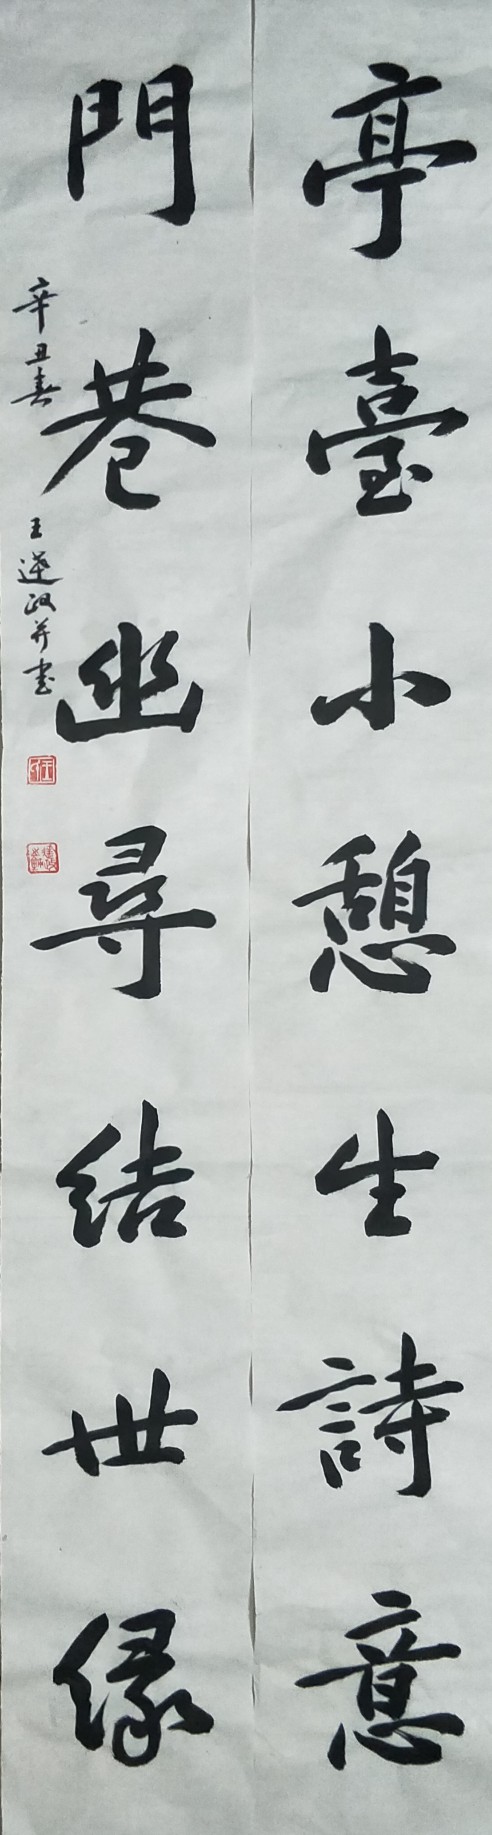 亭臺小憩生詩意
門巷幽尋結世緣
辛丑春
王蓮政並書